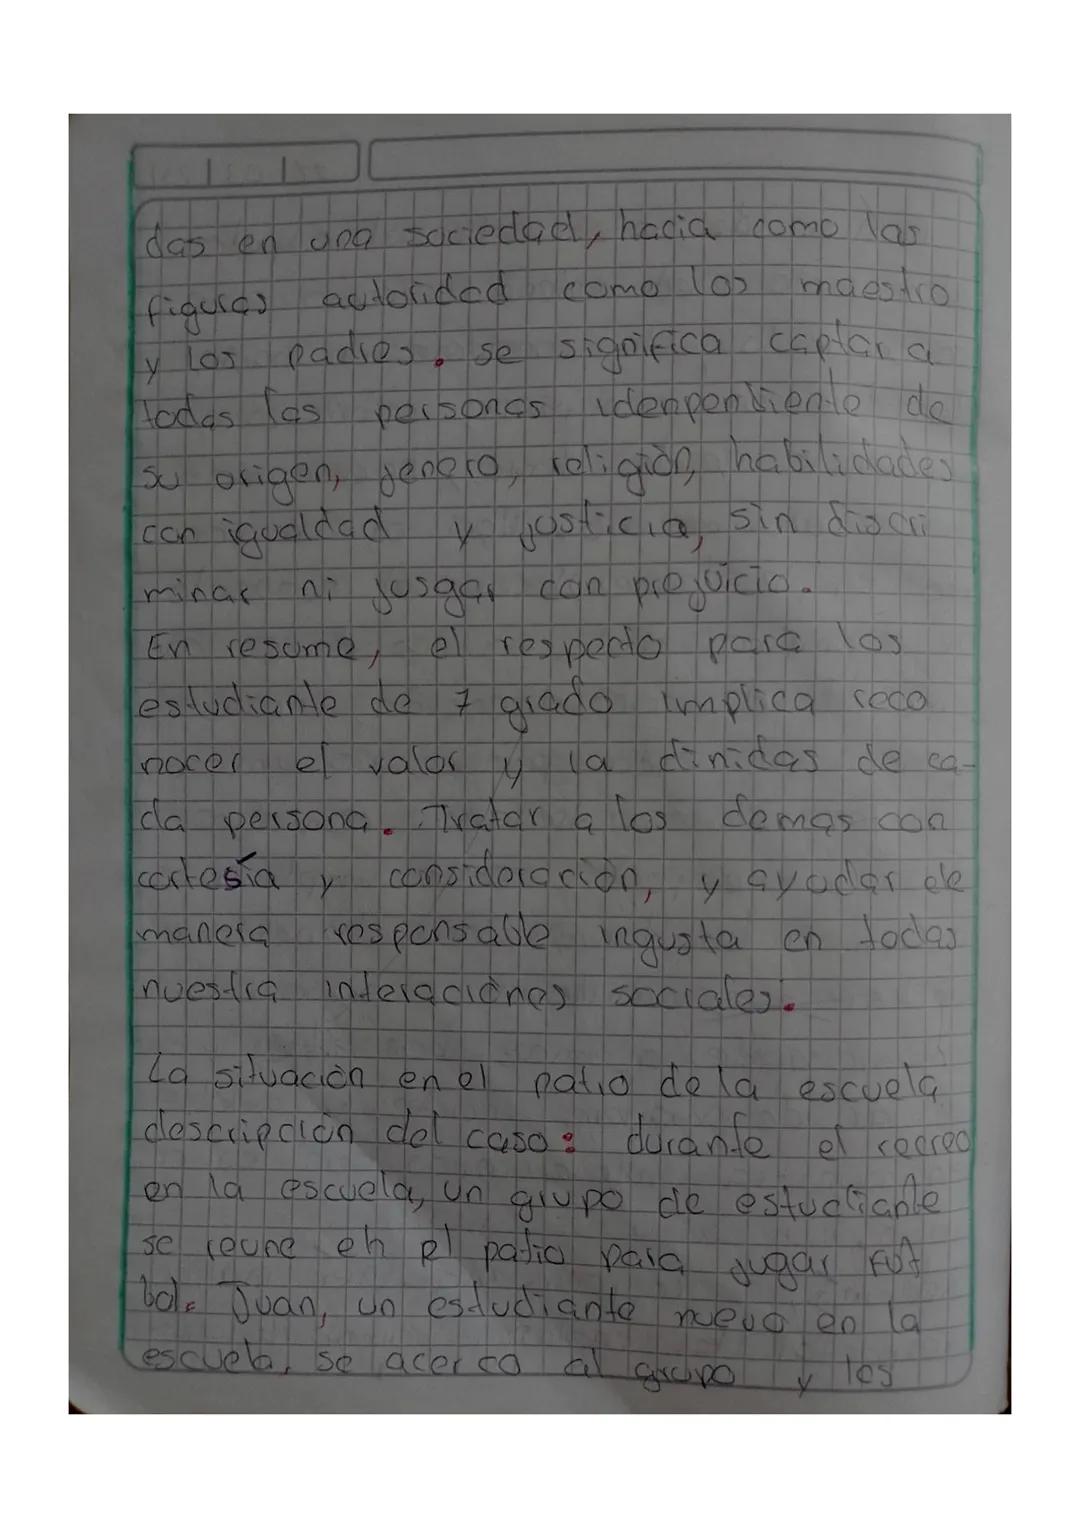 das en una sociedad, hacia como las
figuras autoridad como los maestro
y los padres. se significa captar a
todas las personas idenpendiente de
su origen, jenero, religión, habilidades
con igualdad y justicia, sin discri
minar ni jusgar con prejuicio.
En resume, el respecto para los
estudiante de 7 grado implica reco
nocer el valor y la dinidas de ca-
da persona. Tratar a los demas con
cortesía y consideración, y ayudar de
manera responsable ingusta en todas
nuestra interaciónes sociales.
La situación en el patio de la escuela
descripción del caso: durante el recreo
en la escuela, un grupo de estudiante
se reune en el patio para jugar fut
bol. Juan, un estudiante nuevo en la
escuela, se acerco al grupo y les